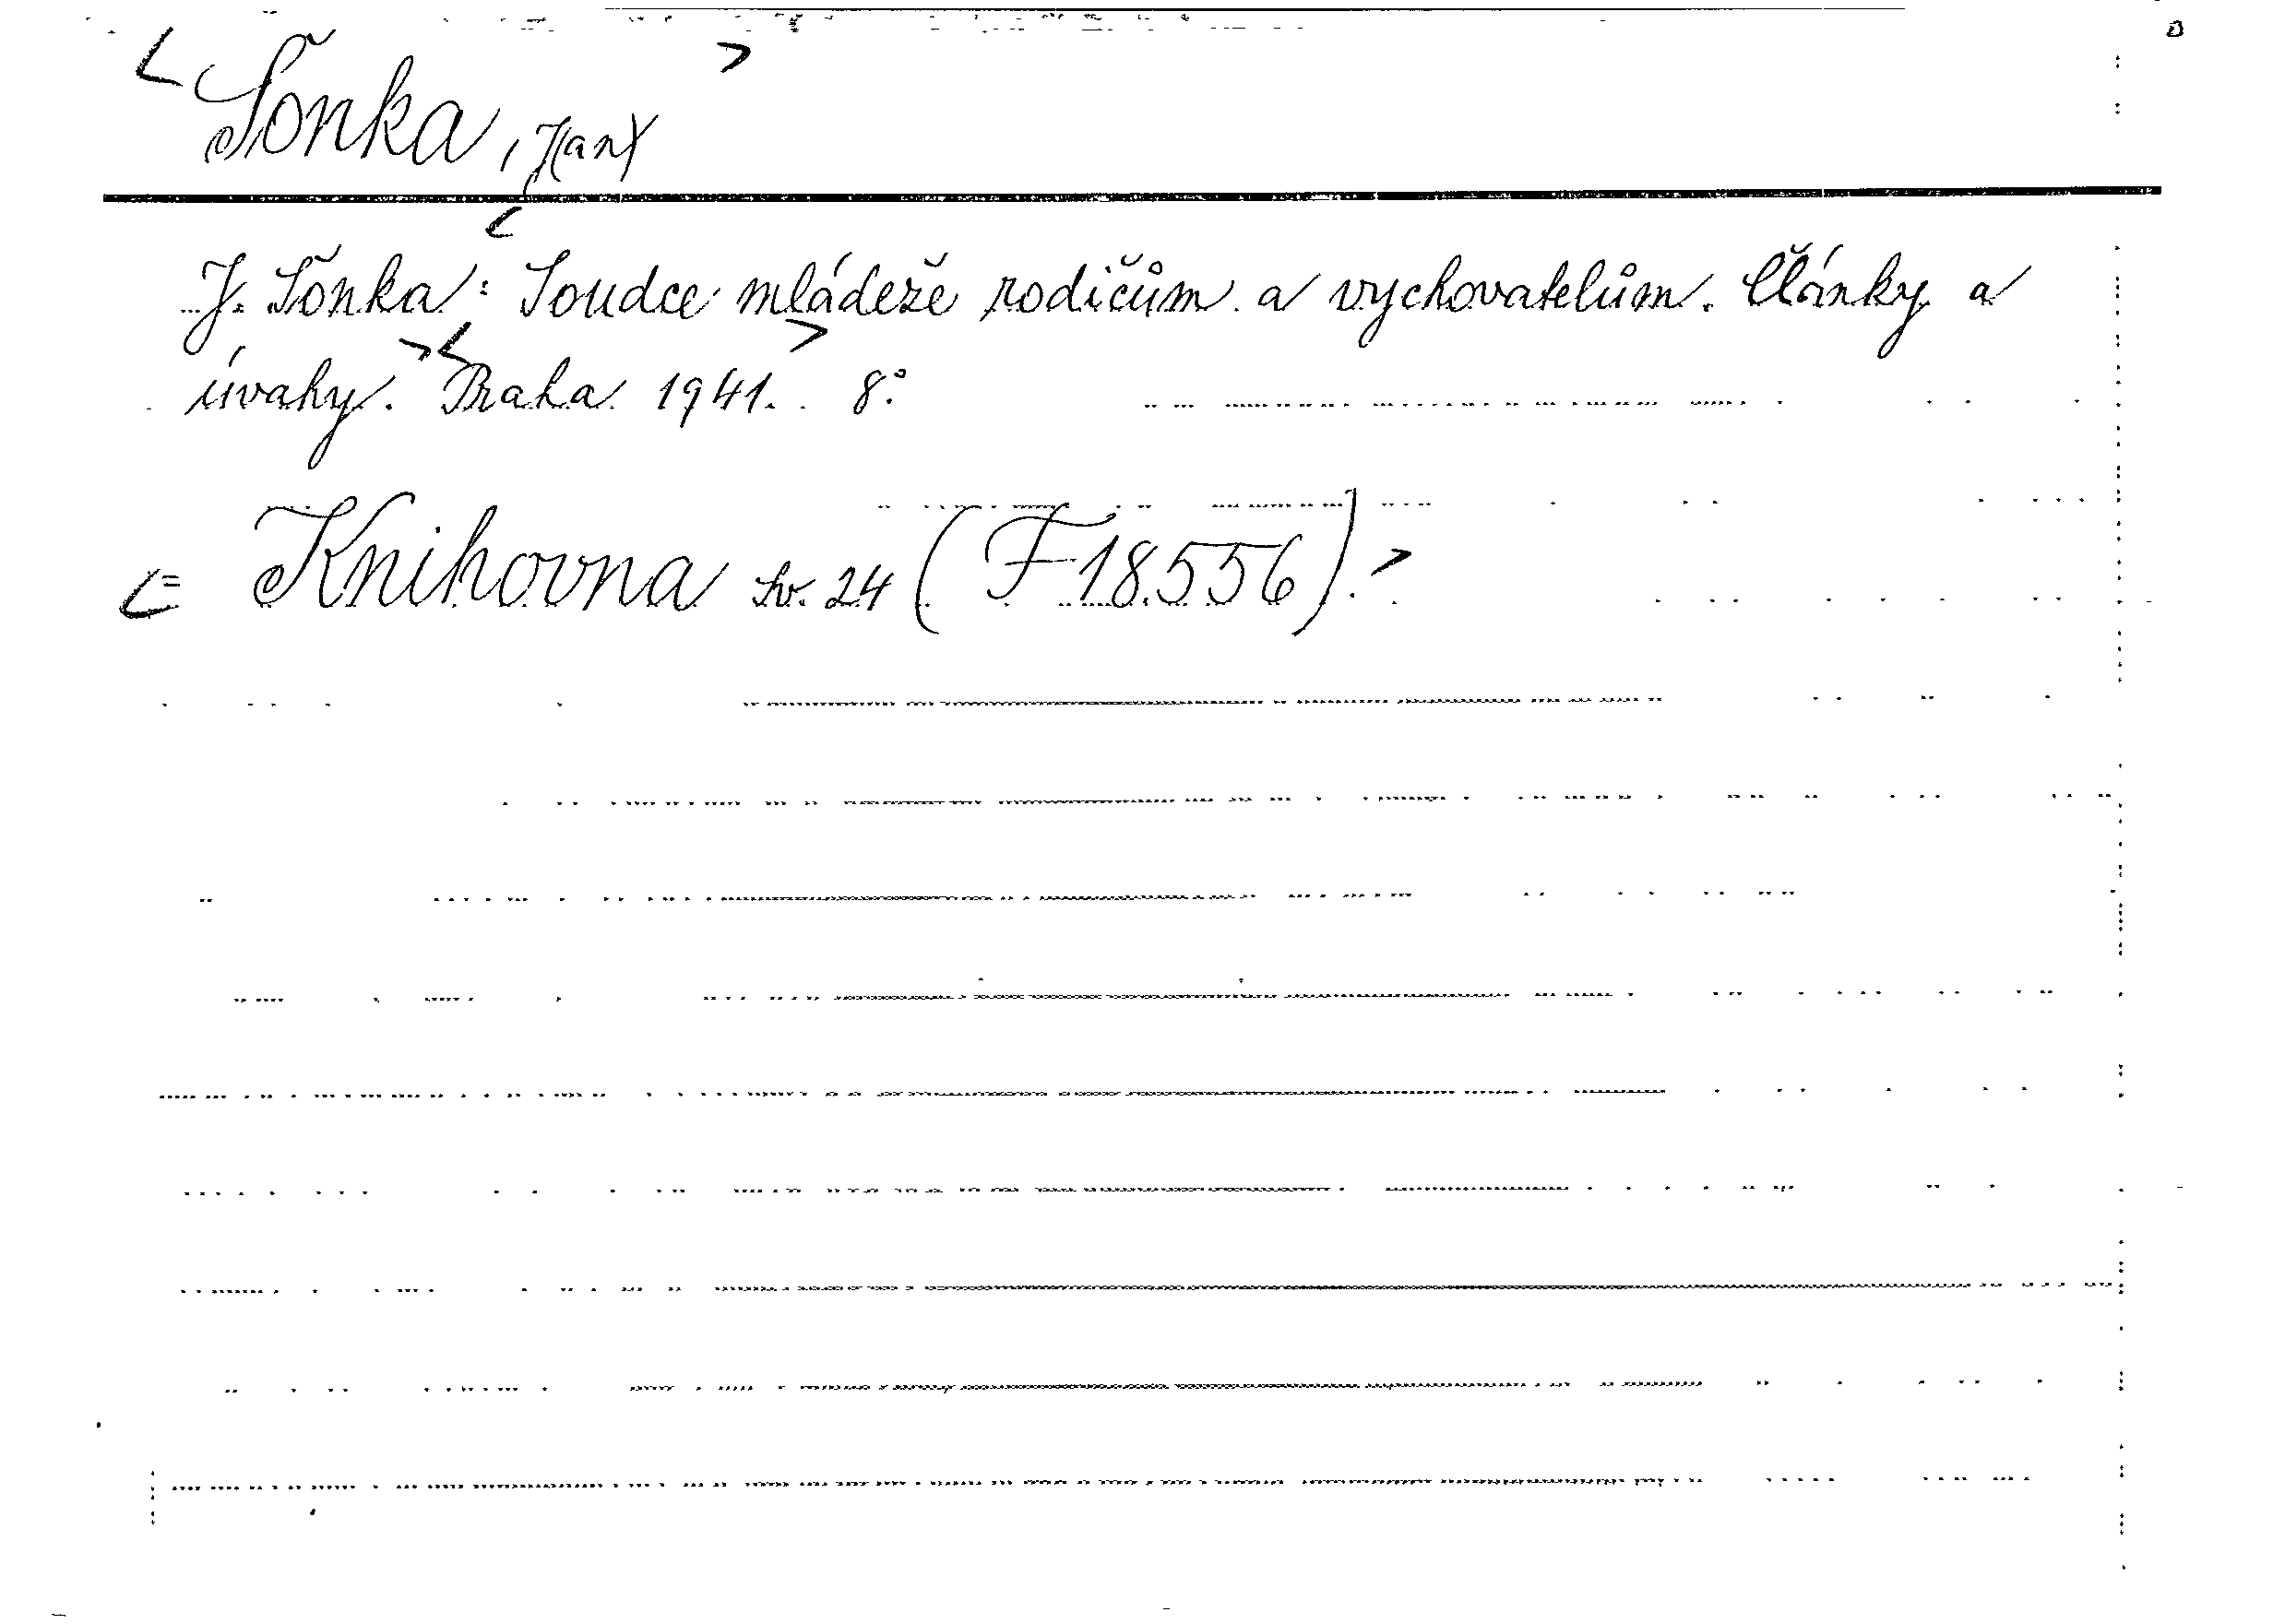 < Šonka, J(an) >
< J. Šonka: Soudce mládeže rodičům a vychovatelům. Články a
úvahy. > < Praha 1941. > 8°.
<= Knihovna sv. 24 (F 18.556). >